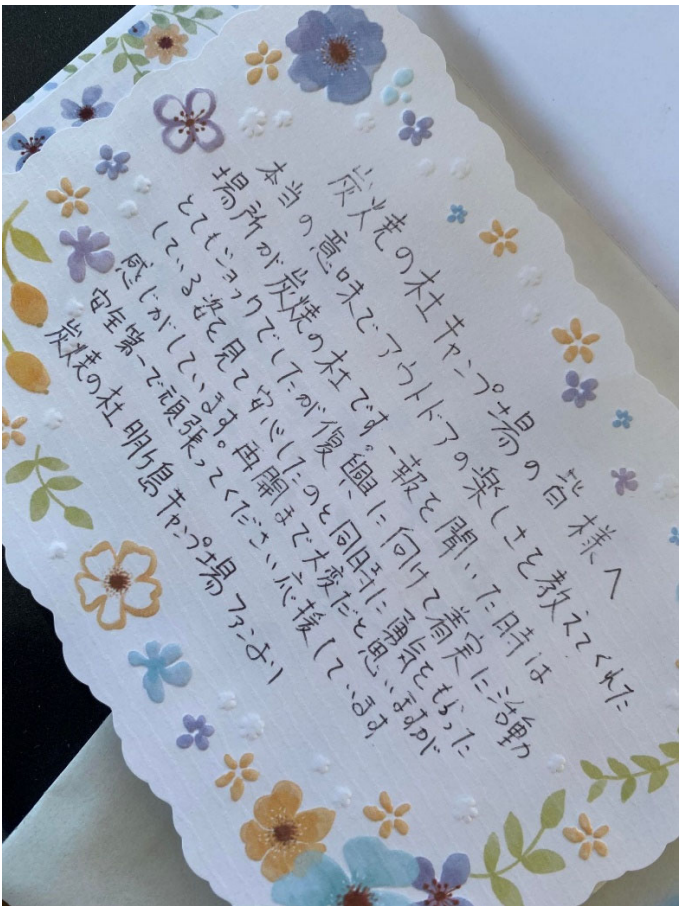 炭焼の杜キャンプ場の皆様へ
本当の意味でアウトドアの楽しさを教えてくれた
場所が炭焼の杜です。一報を聞いた時は
とてもショックでしたが復興に向けて着実に活動
している姿を見て安心したのと同時に勇気をもらった
感じがしています。再開まで大変だと思いますが
安全第一で頑張ってください応援しています
炭焼の杜明ヶ島キャンプ場ファンより